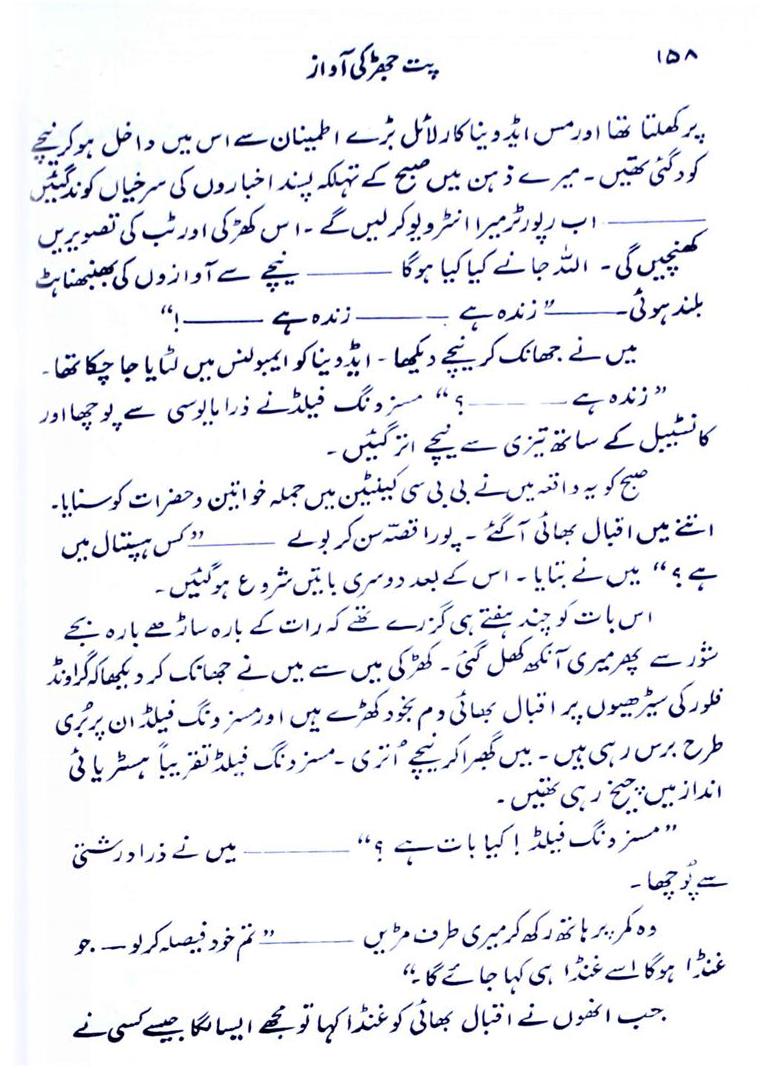 ۱۵۸
پت جھڑ کی آواز
پر کھلتا تھا اور مس ایڈوینا کارلائل بڑے اطمینان سے اس میں داخل ہو کر نیچے
کود گئی تھیں۔ میرے ذہن میں صبح کے تہلکہ پسند اخباروں کی سرخیاں کوند گئیں
——— اب رپورٹر میرا انٹرویو کر لیں گے۔ اس کھڑکی اور ٹب کی تصویریں
کھنچیں گی۔ اللہ جانے کیا کیا ہوگا ——— نیچے سے آوازوں کی بھنبھناہٹ
بلند ہوئی۔ ——— ”زندہ ہے ——— زندہ ہے ——— !“
میں نے جھانک کر نیچے دیکھا۔ ایڈوینا کو ایمبولنس میں لٹایا جا چکا تھا۔
”زندہ ہے ——— ؟“ مسز ونگ فیلڈ نے ذرا مایوسی سے پوچھا اور
کانسٹیبل کے ساتھ تیزی سے نیچے اتر گئیں۔
صبح کو یہ واقعہ میں نے بی بی سی کینٹین میں جملہ خواتین و حضرات کو سنایا۔
اتنے میں اقبال بھائی آگئے۔ پورا قصّہ سن کر بولے ——— ”کس ہسپتال میں
ہے؟“ میں نے بتایا۔ اس کے بعد دوسری باتیں شروع ہو گئیں۔
اس بات کو چند ہفتے ہی گزرے تھے کہ رات کے بارہ ساڑھے بارہ بجے
شور سے پھر میری آنکھ کھل گئی۔ کھڑکی میں سے میں نے جھانک کر دیکھا کہ گراونڈ
فلور کی سیڑھیوں پر اقبال بھائی دم بخود کھڑے ہیں اور مسز ونگ فیلڈ ان پر بُری
طرح برس رہی ہیں۔ میں گھبرا کر نیچے اُتری۔ مسز ونگ فیلڈ تقریباً ہسٹریائی
انداز میں چیخ رہی تھیں۔
”مسز ونگ فیلڈ! کیا بات ہے؟“ ——— میں نے ذرا درشتی
سے پُوچھا۔
وہ کمر پر ہاتھ رکھ کر میری طرف مڑیں ——— ”تم خود فیصلہ کر لو — جو
غنڈا ہوگا اسے غنڈا ہی کہا جائے گا۔“
جب انھوں نے اقبال بھائی کو غنڈا کہا تو مجھے ایسا لگا جیسے کسی نے